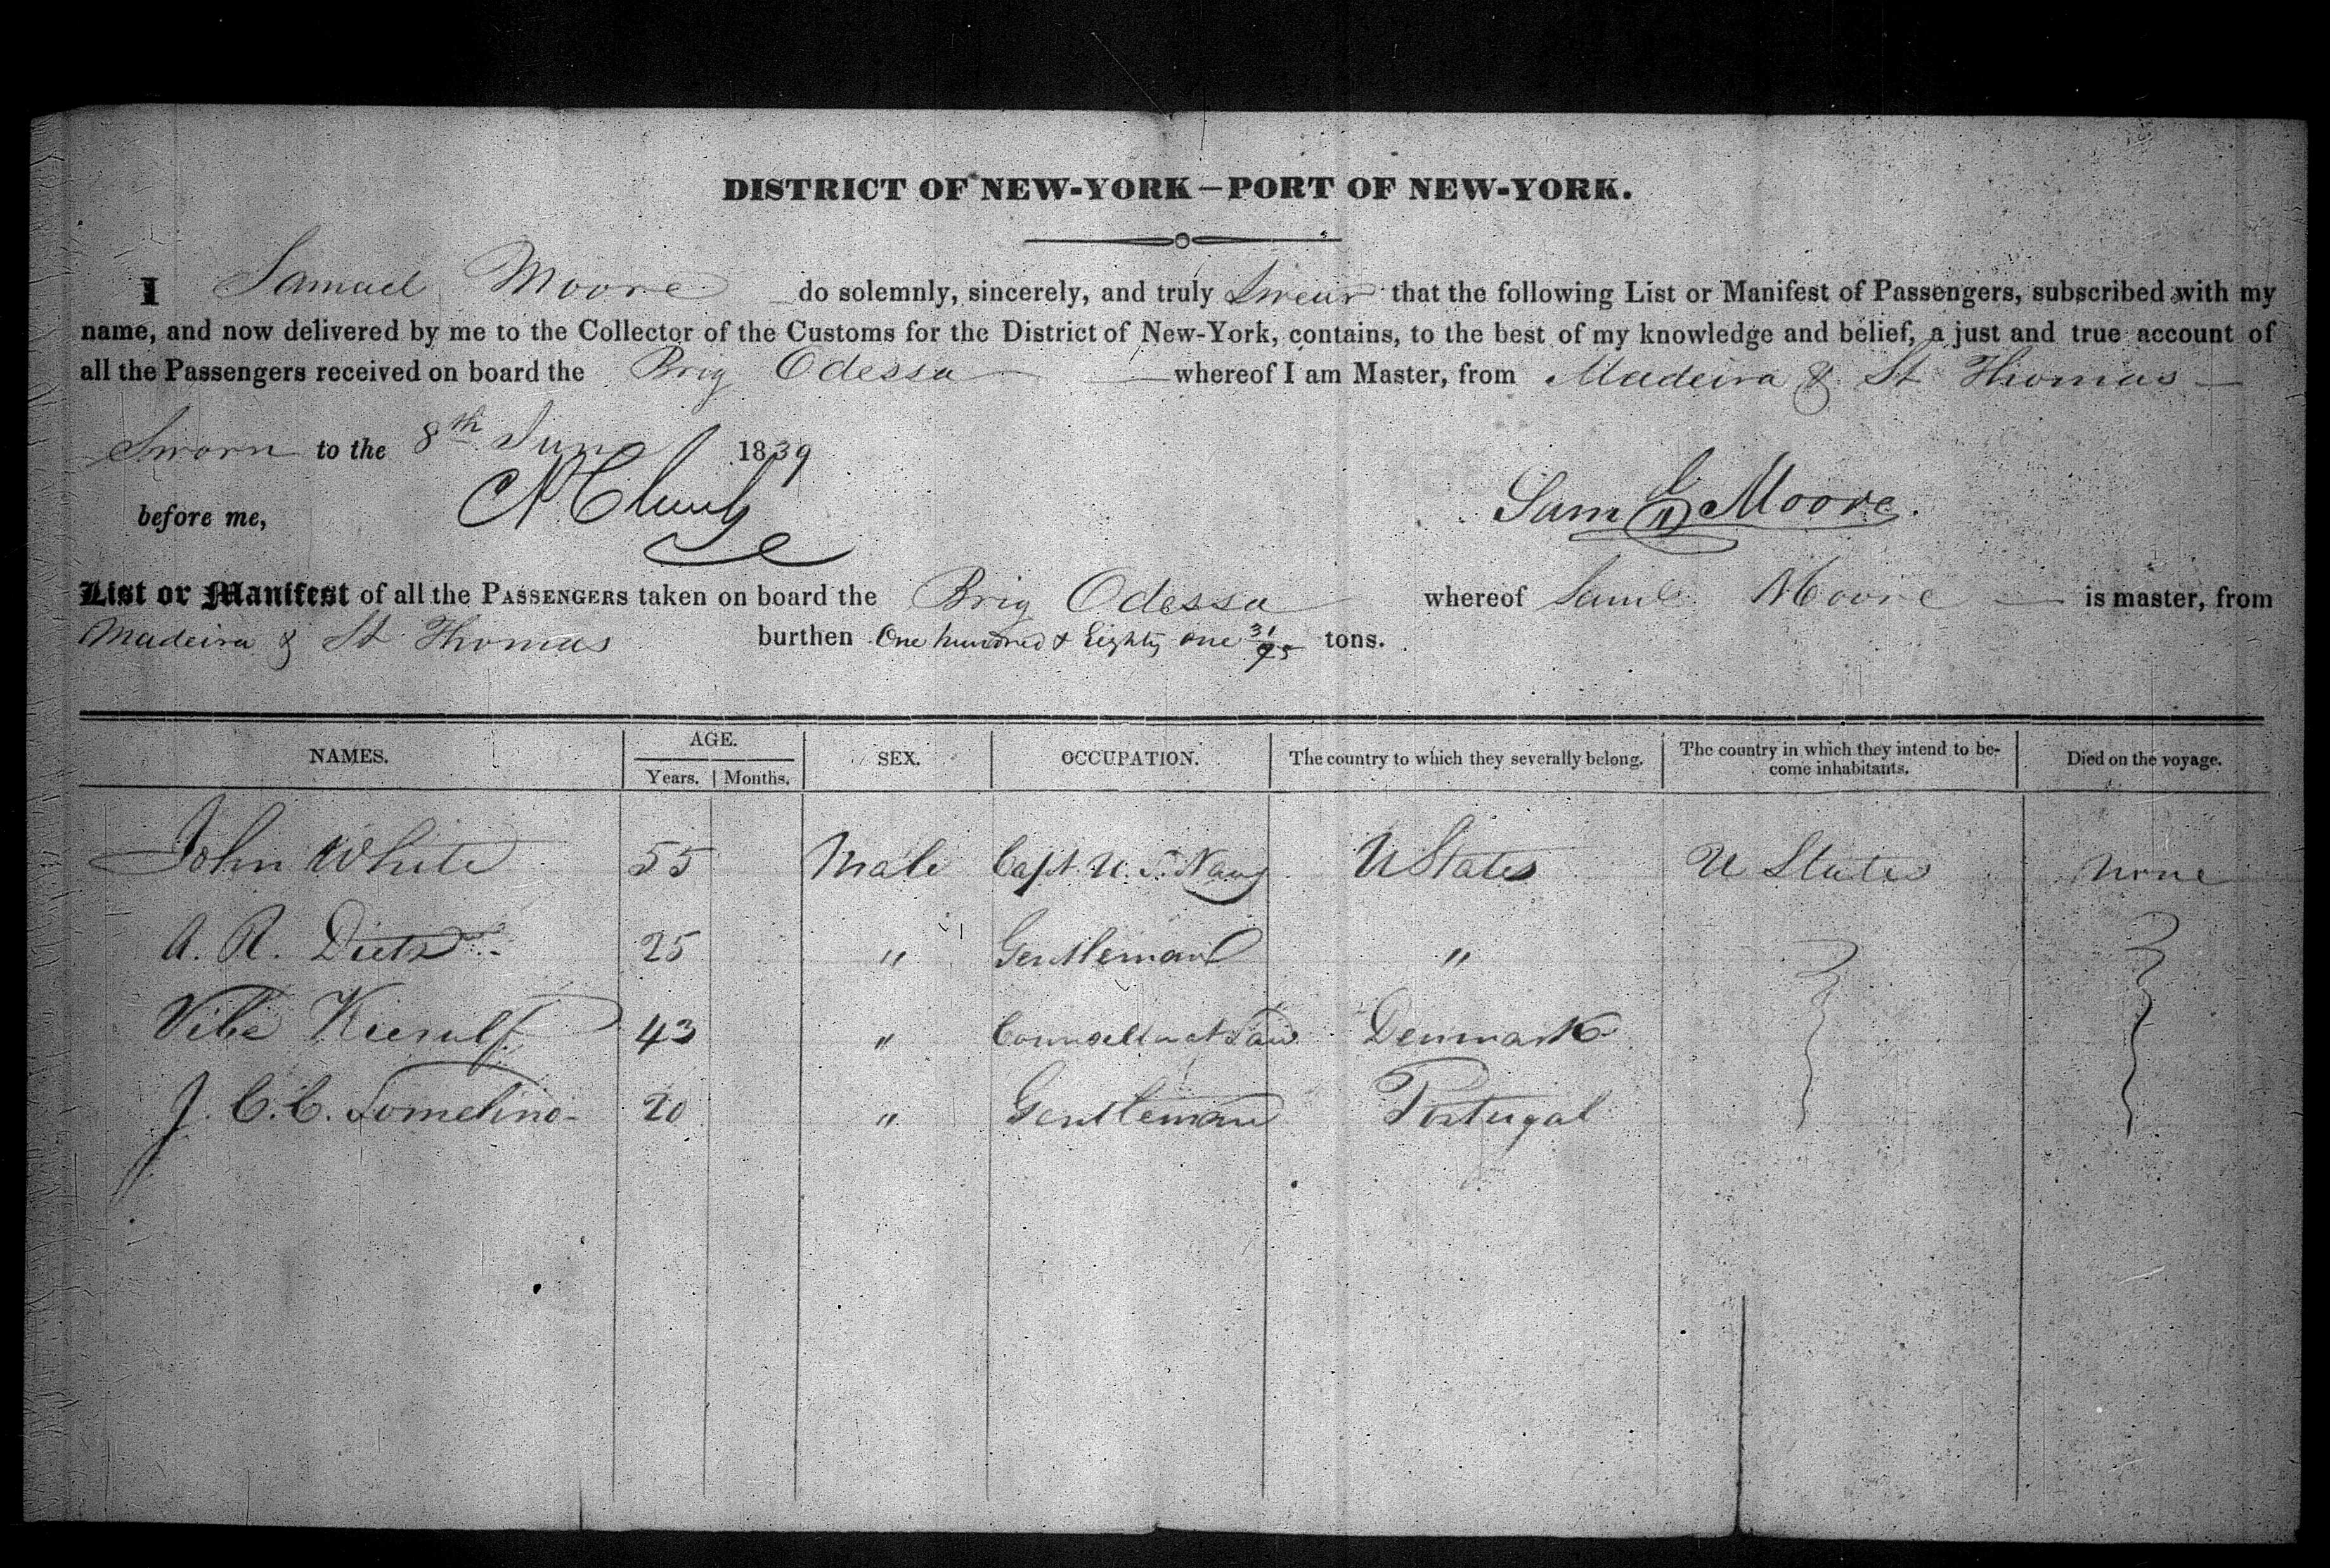 DISTRICT OF NEW-YORK—PORT OF NEW-YORK.
I Samuel Moore do solemnly, sincerely, and truly Swear that the following List or Manifest of Passengers, subscribed with my
name, and now delivered by me to the Collector of the Customs for the District of New-York, contains, to the best of my knowledge and belief, a just and true account of
all the Passengers received on board the Brig Odessa whereof I am Master, from Madeira & St Thomas
Sworn to the 8th June 1839
before me, Saml Moore.
List or Manifest of all the PASSENGERS taken on board the Brig Odessa whereof Saml Moore is master, from
Madeira & St Thomas burthen One hundred & Eighty one 31/95 tons.
NAMES. AGE. SEX. OCCUPATION. The country to which they severally belong. The country in which they intend to be- Died on the voyage.
Years. Months. come inhabitants.
John White 55 Male Capt. U. S. Navy U States U States None
A. R. Dietz 25 " Gentleman "
Vibe Kierulf 43 " Counsellor at Law Denmark
J. C. C. Lomelino 20 " Gentleman Portugal